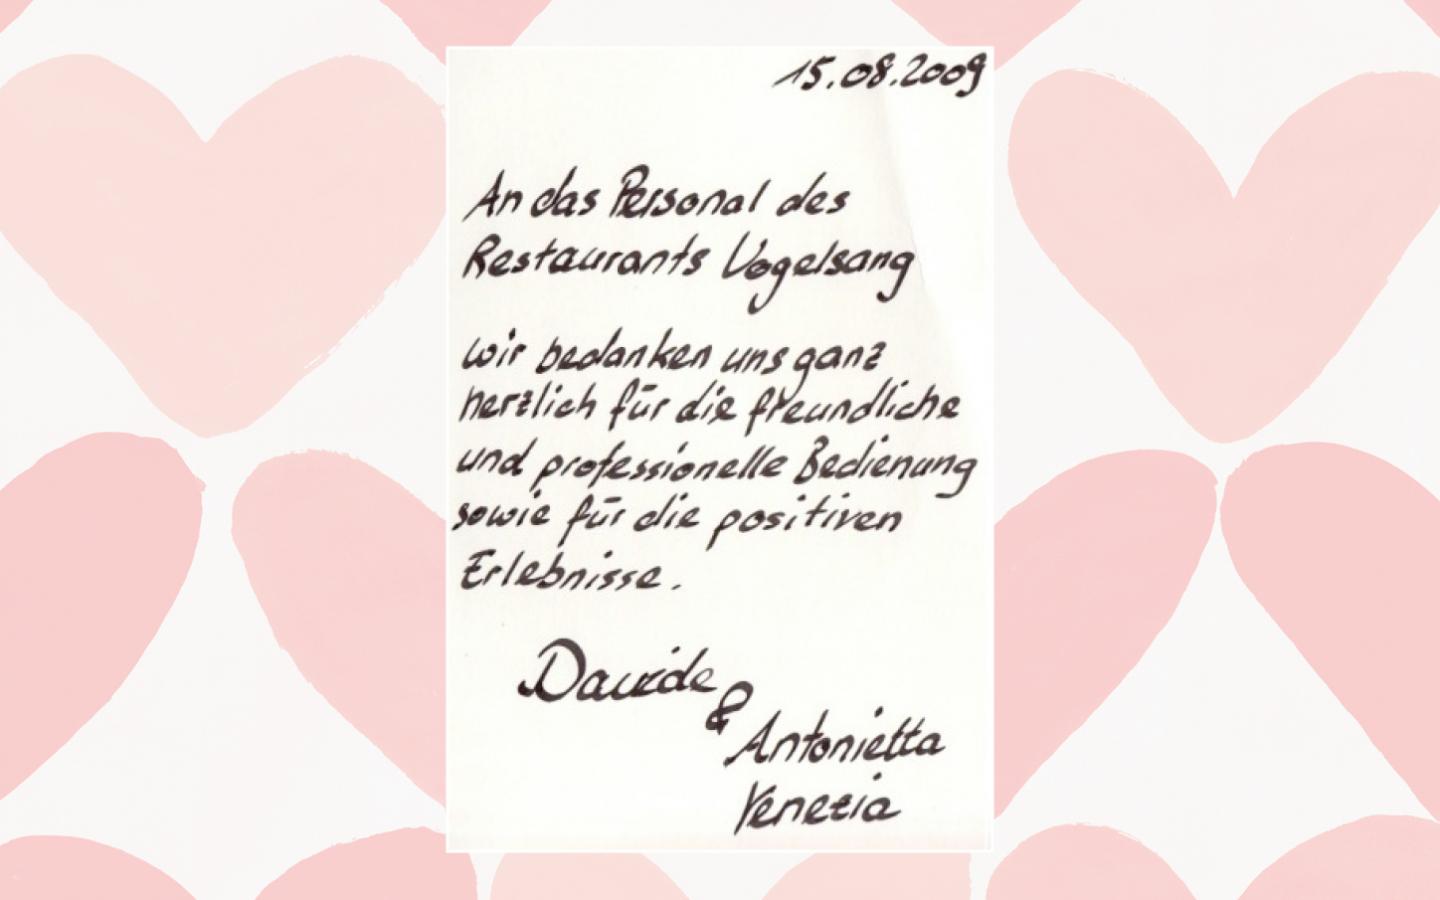 15.08.2009
An das Personal des
Restaurants Vogelsang
Wir bedanken uns ganz
herzlich für die freundliche
und professionelle Bedienung
sowie für die positiven
Erlebnisse.
Davide
&
Antonietta
Venezia